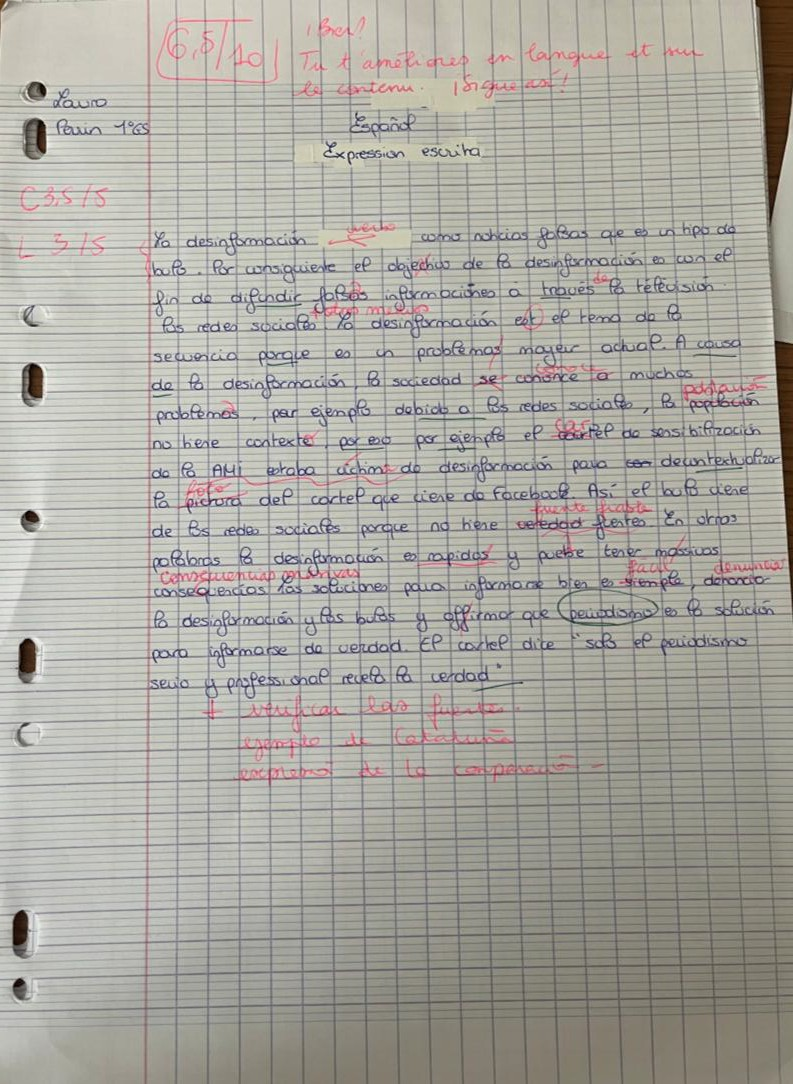 6,5/10
¡Bien!
Tu t'améliores en langue et sur
le contenu. ¡Sigue así!
Perrin 1°G5
Español
Expression escrita
C 3,5/5
L 3/5
La desinformación como noticias falsas que es un tipo de
bulo. Por consiguiente el objectivo de la desinformación es con el
fin de difundir falsas informaciones à través de la télévision.
las redes sociales. La desinformación est el tema de la
secuencia porque es un problemas mayeur actual. A causa
de la desinformación, la sociedad se conónce a muchos
problemas, par ejemplo debido a las redes sociales, la popelación
población
no tiene contexte, por eso por ejemplo el cartel de sensibilización
de la AMI estaba víctima de desinformación para decuntextualizar
foto
la pichora del cartel que viene de Facebook. Así el bulo viene
fuente fiable
de las redes sociales porque no tiene veredad fuentes. En otras
palabras la desinformación es rapidas y puebe tener massivas
consecuencias masivas fácil denunciar
consequencias las soluciones para informarse bien es siemple, denoncia
la desinformación y las bulos y affirmar que periodismo es la solución
para informarse de verdad. El cartel dice "solo el periodismo
serio y professional revela la verdad"
+ verificar las fuentes.
ejemplo de Cataluña
de la comparación